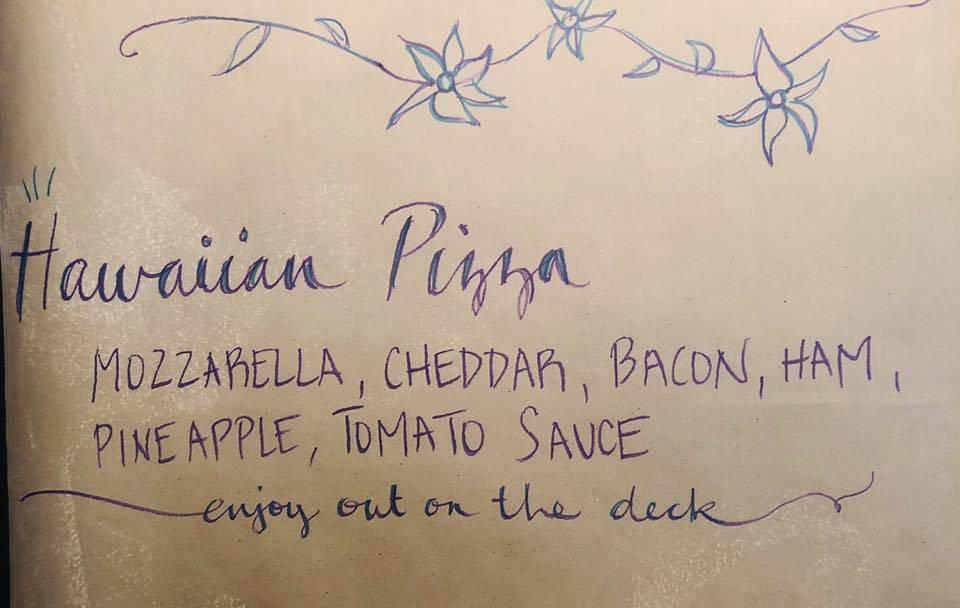 Hawaiian Pizza
MOZZARELLA, CHEDDAR, BACON, HAM,
PINEAPPLE, TOMATO SAUCE
enjoy out on the deck